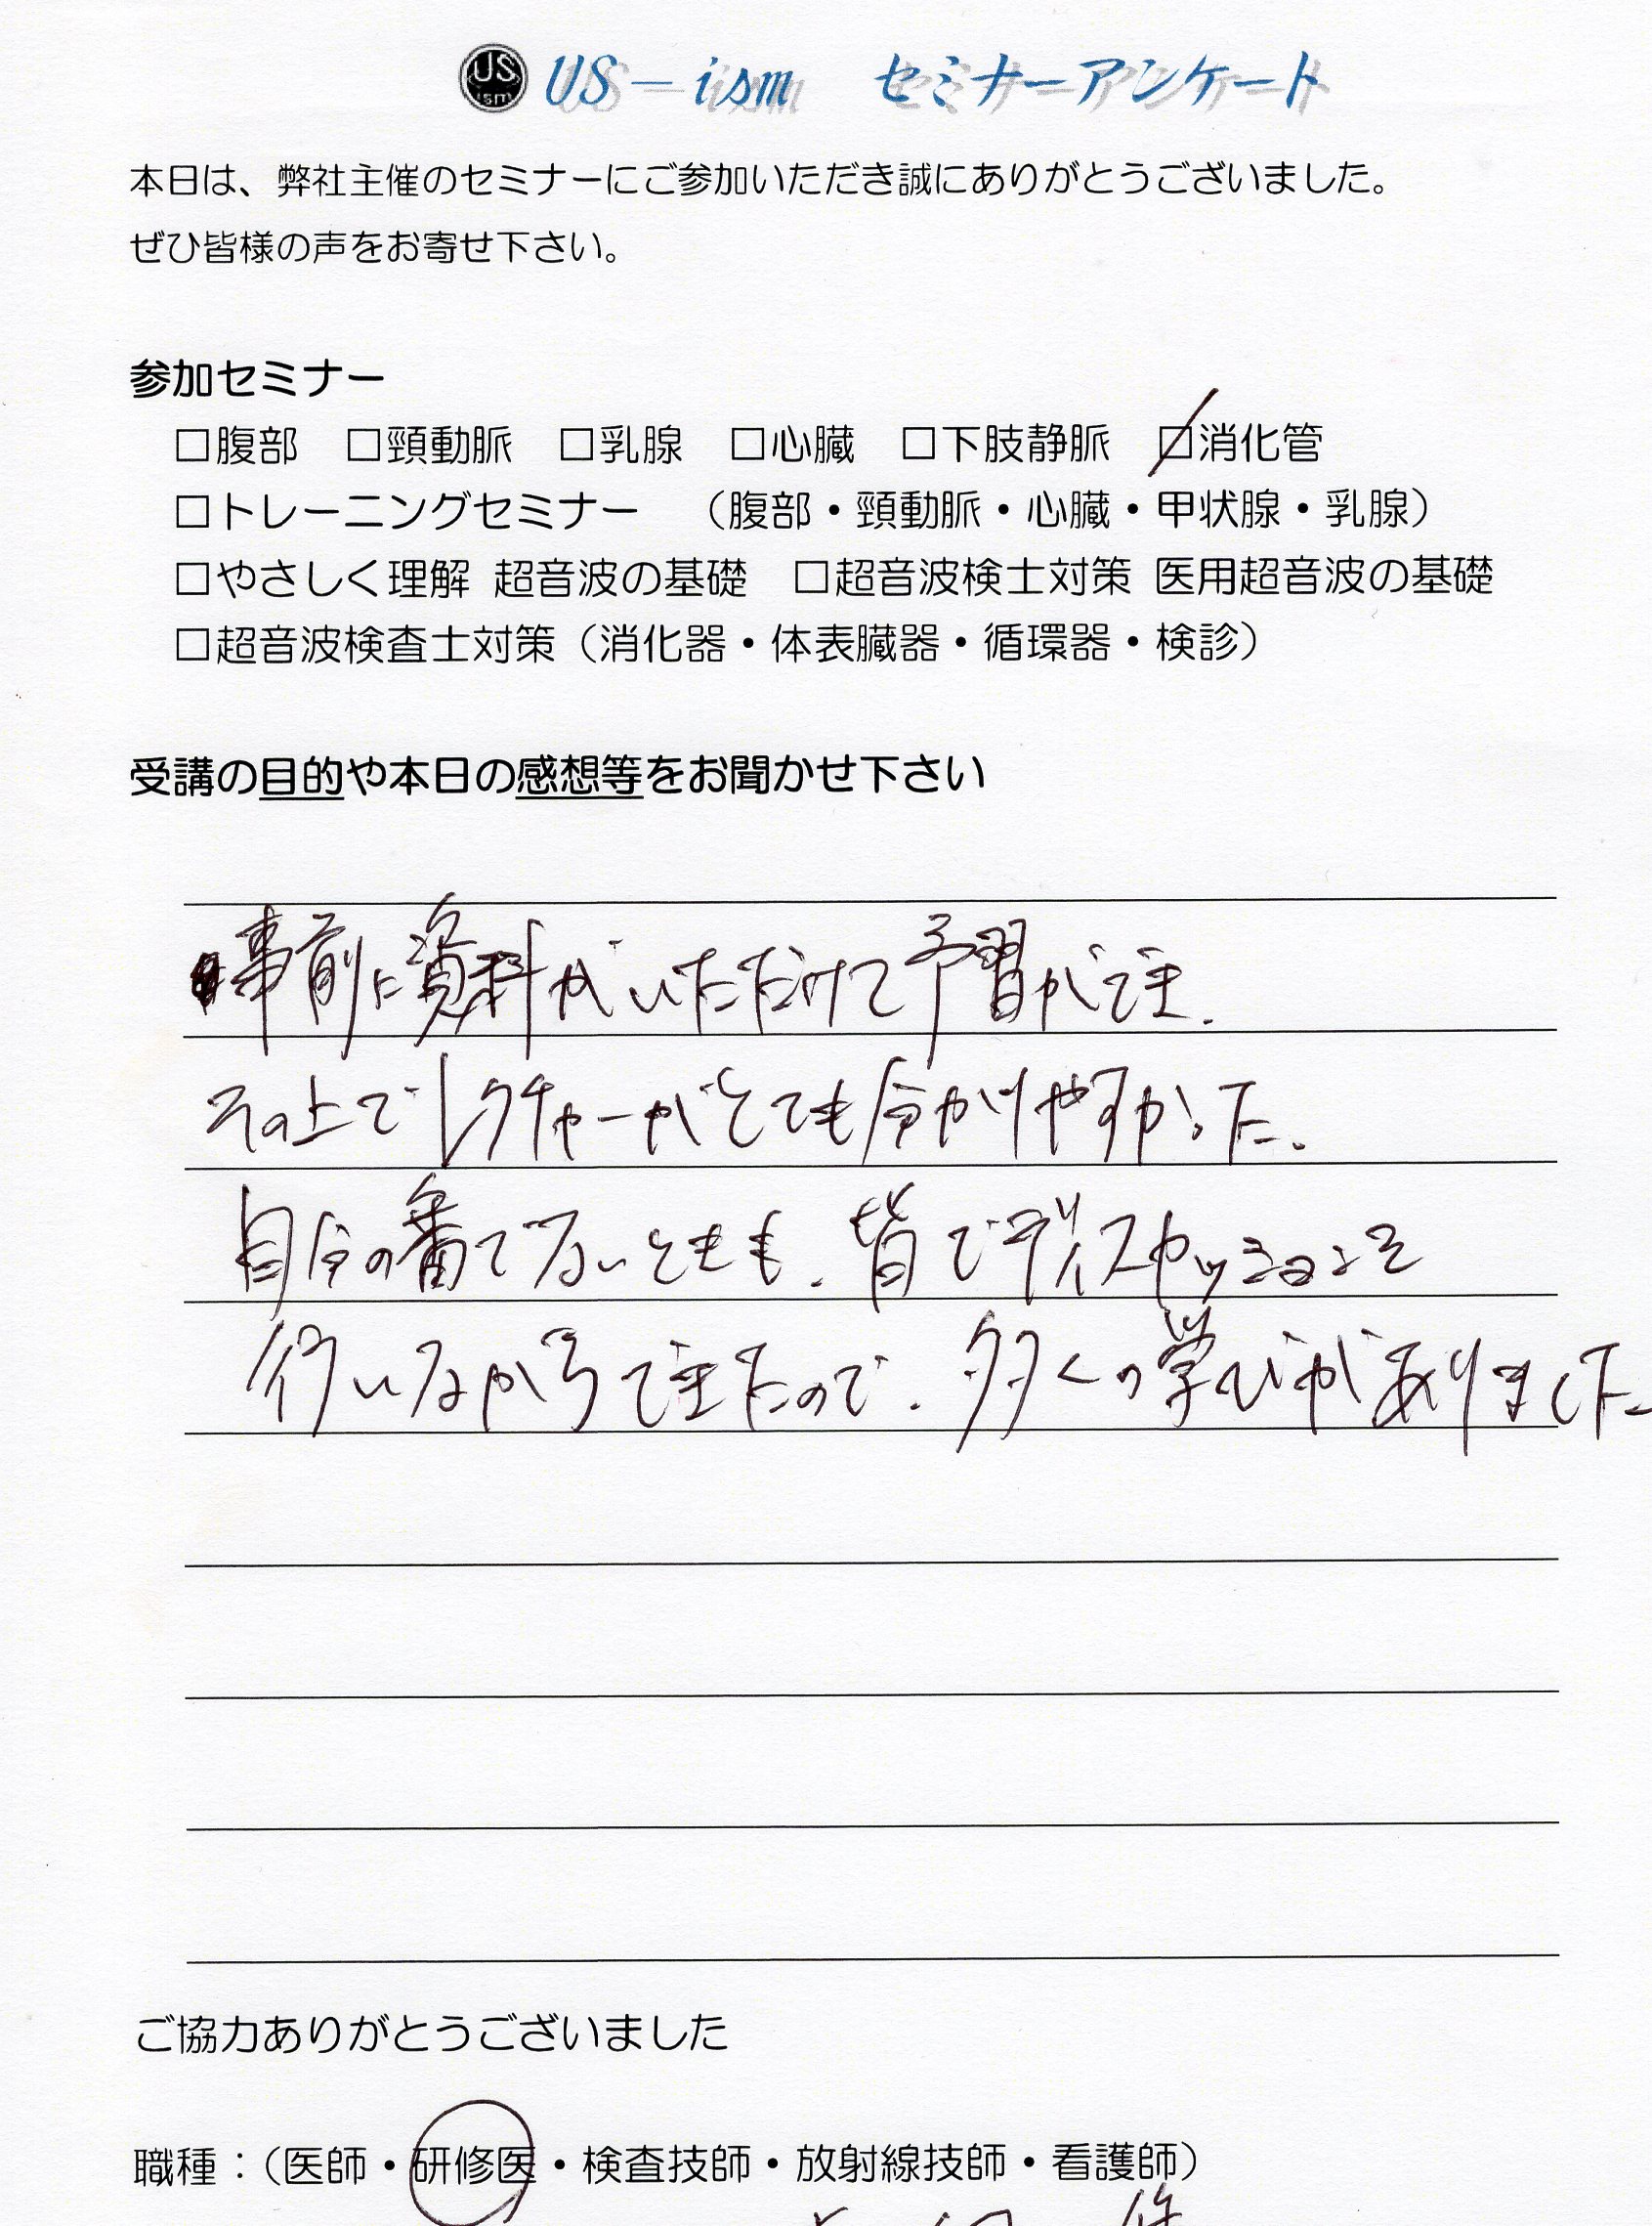 US ism US-ism セミナーアンケート
本日は、弊社主催のセミナーにご参加いただき誠にありがとうございました。
ぜひ皆様の声をお寄せ下さい。
参加セミナー
□腹部 □頸動脈 □乳腺 □心臓 □下肢静脈 ☑消化管
□トレーニングセミナー （腹部・頸動脈・心臓・甲状腺・乳腺）
□やさしく理解 超音波の基礎 □超音波検士対策 医用超音波の基礎
□超音波検査士対策（消化器・体表臓器・循環器・検診）
受講の目的や本日の感想等をお聞かせ下さい
事前に資料がいただけて予習ができ、
その上でレクチャーがとても分かりやすかった。
自分の番でないときも、皆でディスカッションを
行いながらできたので、多くの学びがありました
ご協力ありがとうございました
職種：（医師・研修医・検査技師・放射線技師・看護師）